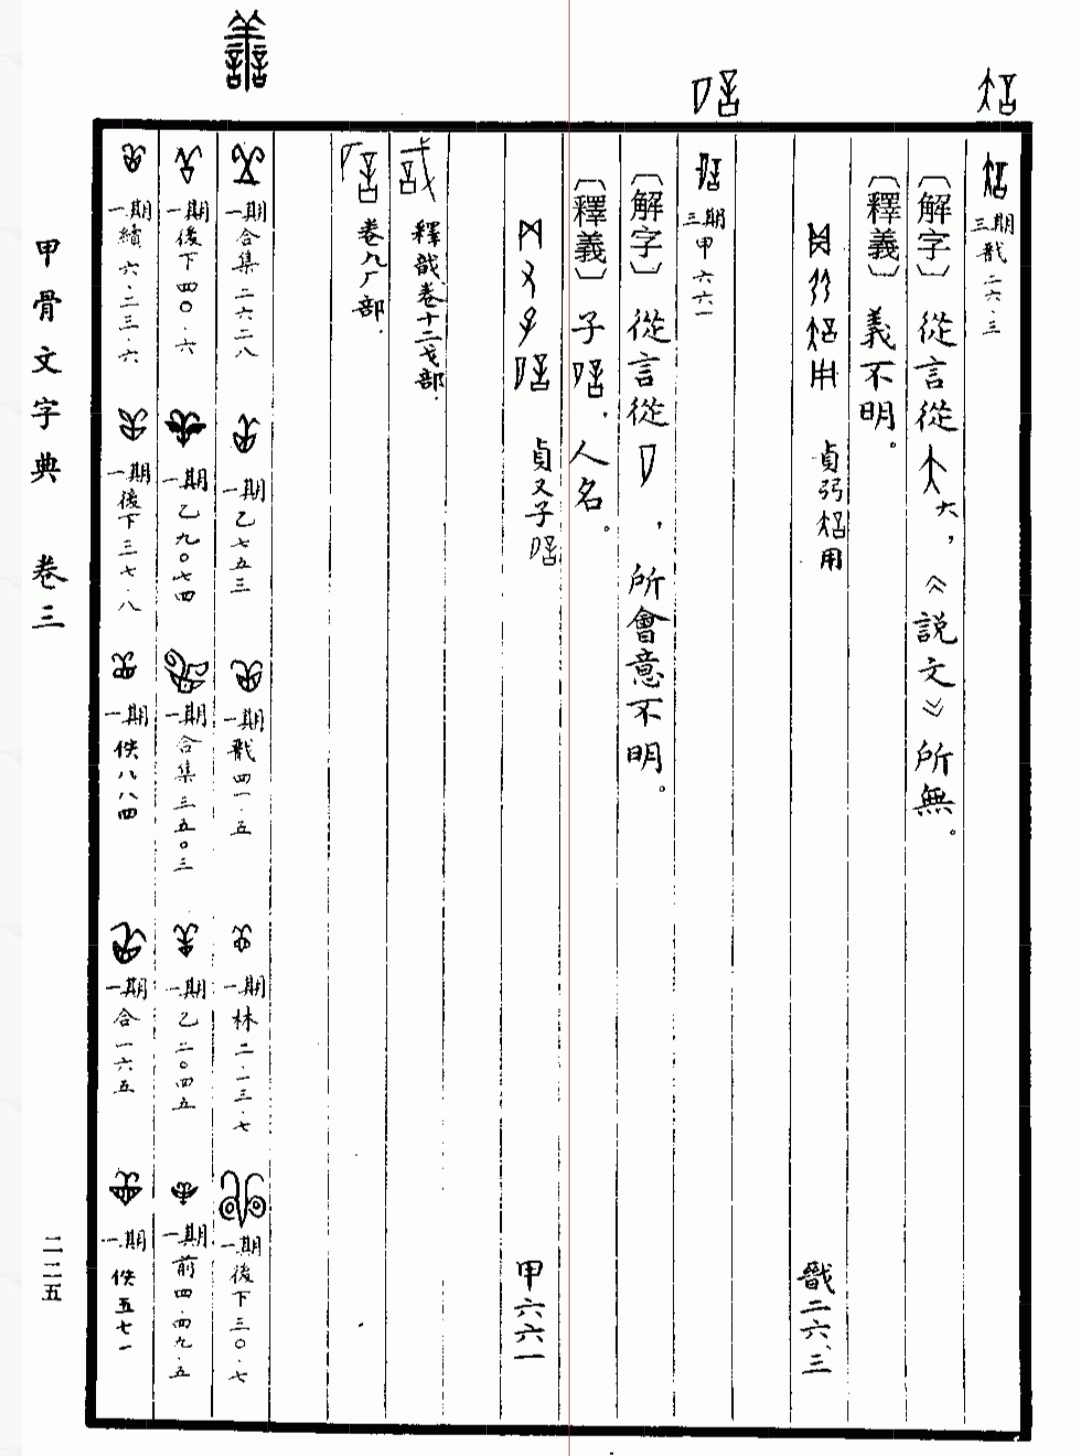 三期 戩二六.三
〔解字〕從言從大,《說文》所無。
〔釋義〕義不明。
貞弜用 戩二六.三
三期 甲六六一
〔解字〕從言從,所會意不明。
〔釋義〕子,人名。
貞又子 甲六六一
釋戠卷十二戈部.
卷九厂部.
一期 合集二六二八
一期 乙七五三
一期 戩四一.五
一期 林二.一三.七
一期 後下三〇.七
一期 後下四〇.六
一期 乙九〇七四
一期 合集三五〇三
一期 乙二〇四五
一期 前四.四九.五
一期 續六.二三.六
一期 後下三七.八
一期 佚八八四
一期 合一六五
一期 佚五七一
甲骨文字典 卷三
二二五